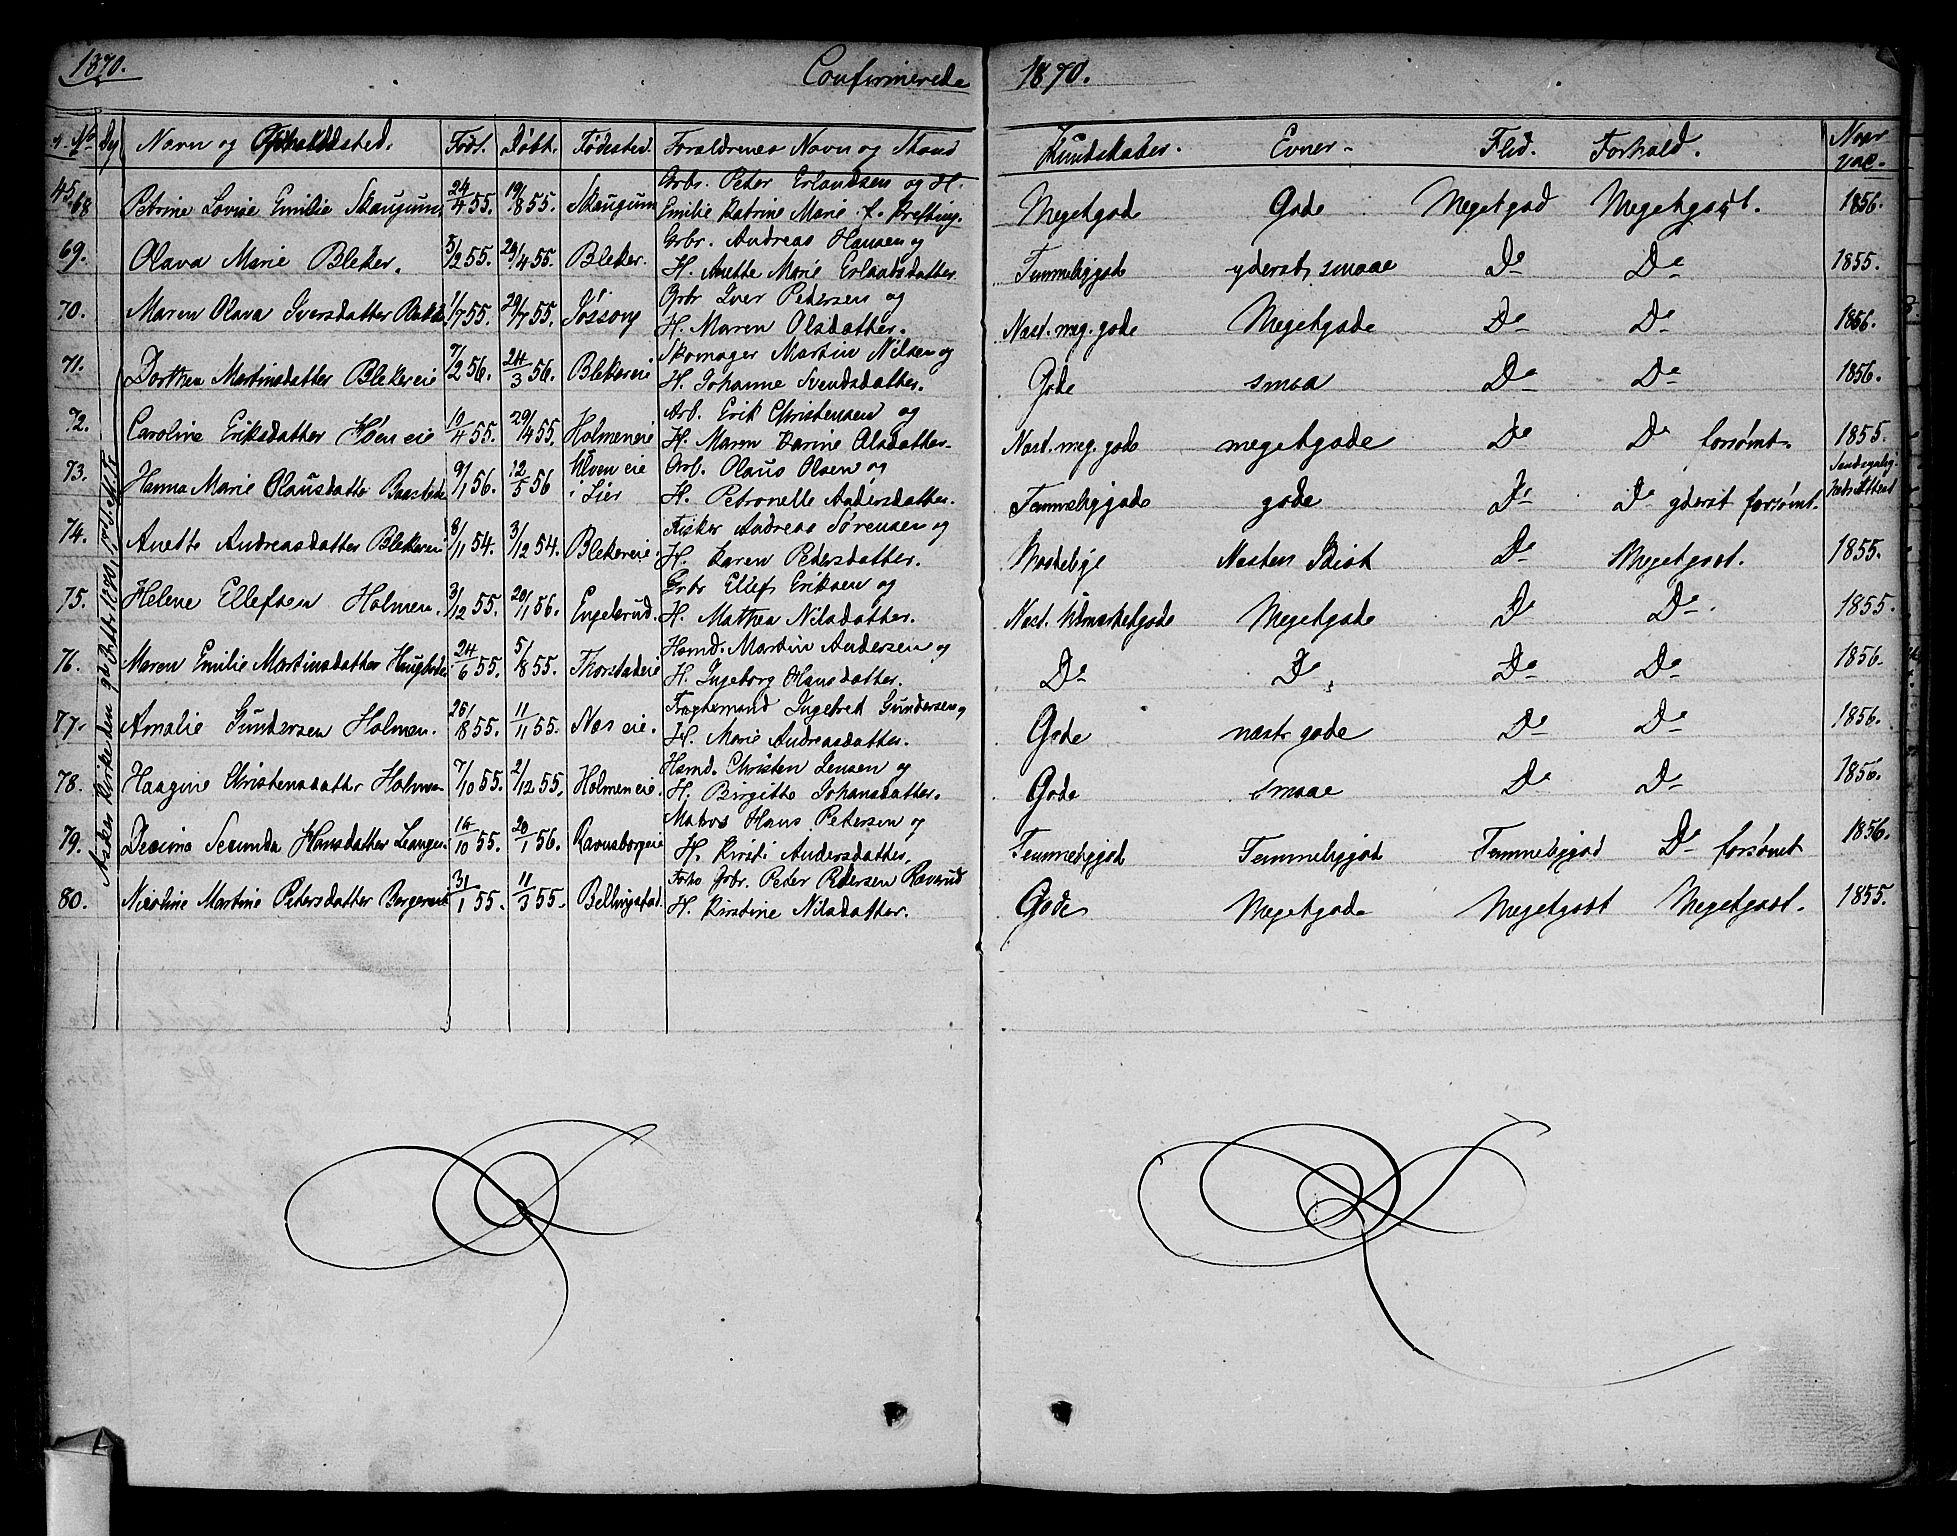 1870.
Confirmerede
1870.
No Dag Navn og Opholdssted. Født. Døbt. Fødested. Forældrenes Navn og Stand
Kundskaber. Evner. Flid. Forhold. Naar vac.
Asker Kirke den
45. 68 Petrine Lovise Emilie Skaugum. 24/4 55. 19/8 55. Skaugum Grbr. Peter Erlandsen og H.
Emilie Katrine Marie f.
Megetgode Gode Megetgod Megetgodt. 1856.
69. Olava Marie Bleker. 5/2 55. 29/4 55. Bleker. Grbr. Andreas Hansen og
H. Anette Marie Erlandsdatter.
Temmeliggode yderst smaae Do Do 1855.
70. Maren Olava Iversdatter 1/7 55. 29/7 55. Grbr Iver Petersen og
H. Maren Olsdatter.
Næst. meg. gode Megetgode Do Do 1856.
71. Dorthea Martinsdatter Blekereie 7/2 56. 24/3 56. Blekereie Skomager Martin Nilsen og
H. Johanne Svendsdatter.
Gode smaa Do Do 1856.
72. Caroline Eriksdatter Høn eie 10/4 55. 29/4 55. Holmeneie Arb. Erik Christensen og
H. Maren Karine Olsdatter.
Næst. meg. gode megetgode Do Do forsømt. 1855.
73. Hanna Marie Olausdatter 9/1 56. 12/5 56 eie i Lier Arb. Olaus Olsen og
H. Petronelle Andersdatter.
Temmeliggode gode Do Do yderst forsømt.
74. Anette Andreasdatter Blekereie 8/11 54. 3/12 54. Blekereie. Fisker Andreas Sørensen og
H. Karen Pedersdatter.
Næsten Idiot Do Megetgodt. 1855.
75. Helene Ellefsen Holmen. 3/12 55. 20/11 56. Engelsrud. Grbr Ellef Eriksen og
H. Mathea Nilsdatter.
Næst. Udmærketgode Megetgode Do Do 1855.
76. Maren Emilie Martinsdatter 24/6 55. 5/8 55. Thorstadeie Husmd. Martin Andersen og
H. Ingeborg Hansdatter.
Do Do Do Do 1856.
77. Amalie Gundersen Holmen. 26/8 55. 11/11 55. Næs eie. Fragtemand Ingebret Gundersen og
H. Marie Andreasdatter.
Gode næst gode Do Do 1856.
78. Haagine Christensdatter Holmen 7/10 55. 2/12 55. Holmeneie. Husmd. Christen Jensen og
H. Birgitte Johansdatter.
Gode smaae Do Do 1856.
79. Decima Secunda Hansdatter Leangen 14/10 55. 20/1 56. Ravnsborgeie Matros Hans Petersen og
H. Kirsti Andersdatter.
Temmeliggod Temmeliggod Temmeliggod Do forsømt 1856.
80. Nicoline Martine Petersdatter Bergereie 31/1 55. 11/3 55. Bellingstad. Forh. Grbr. Peter Pedersen Ræverud
H. Kirstine Nilsdatter.
Gode Megetgode Megetgodt Megetgodt. 1855.